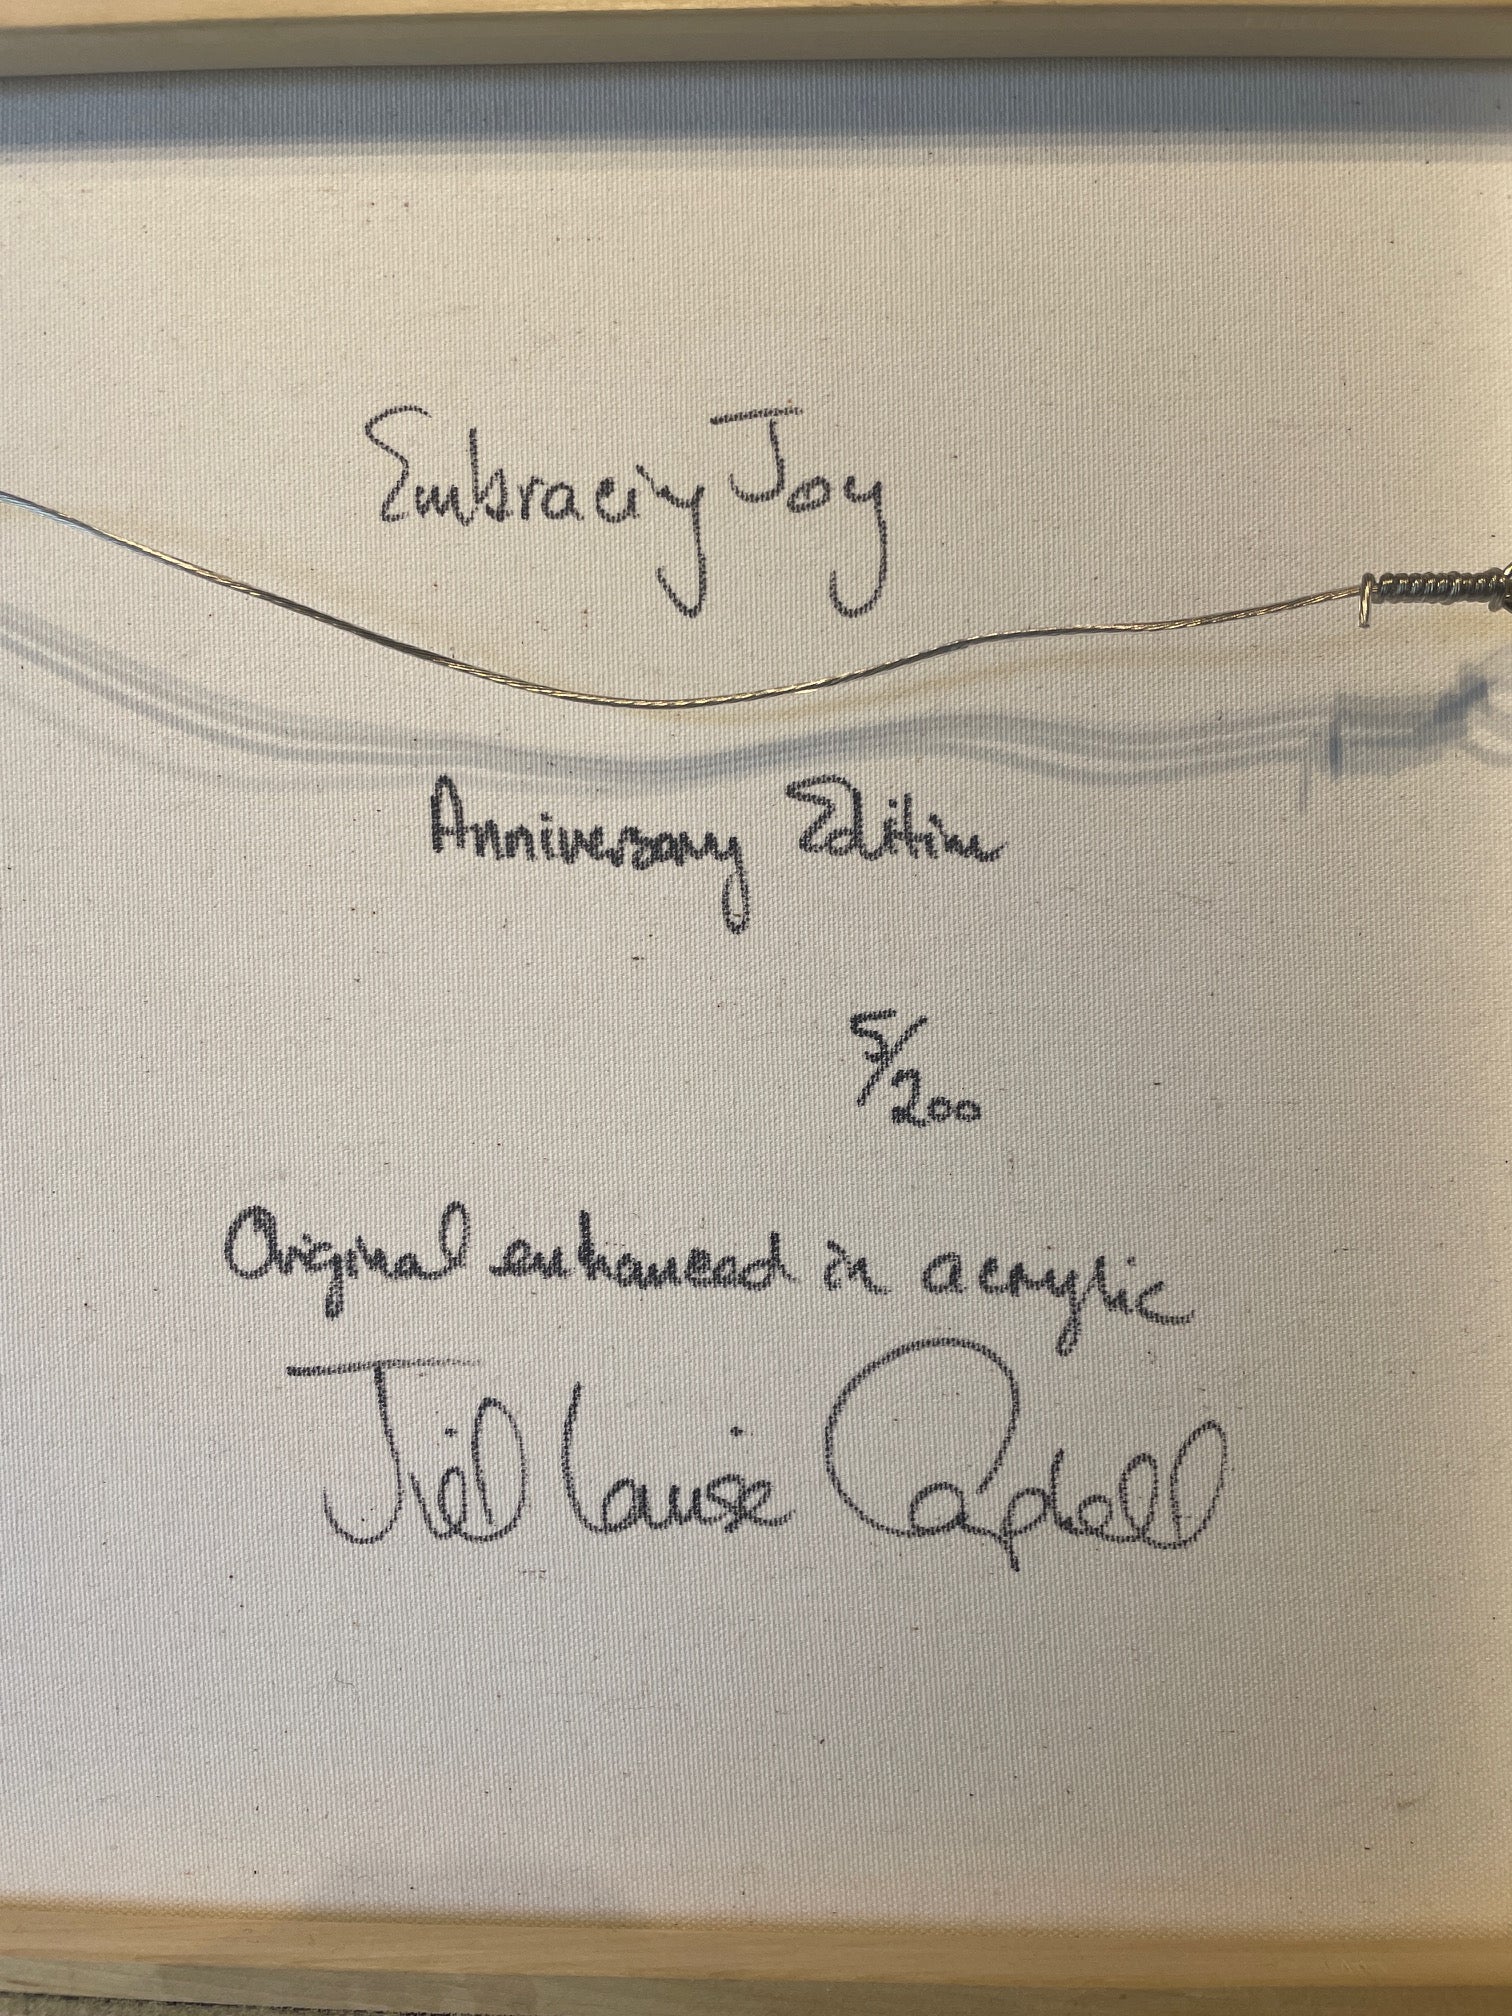 Embracing Joy
Anniversary Edition
5/200
Original enhanced in acrylic
Jill Louise Campbell